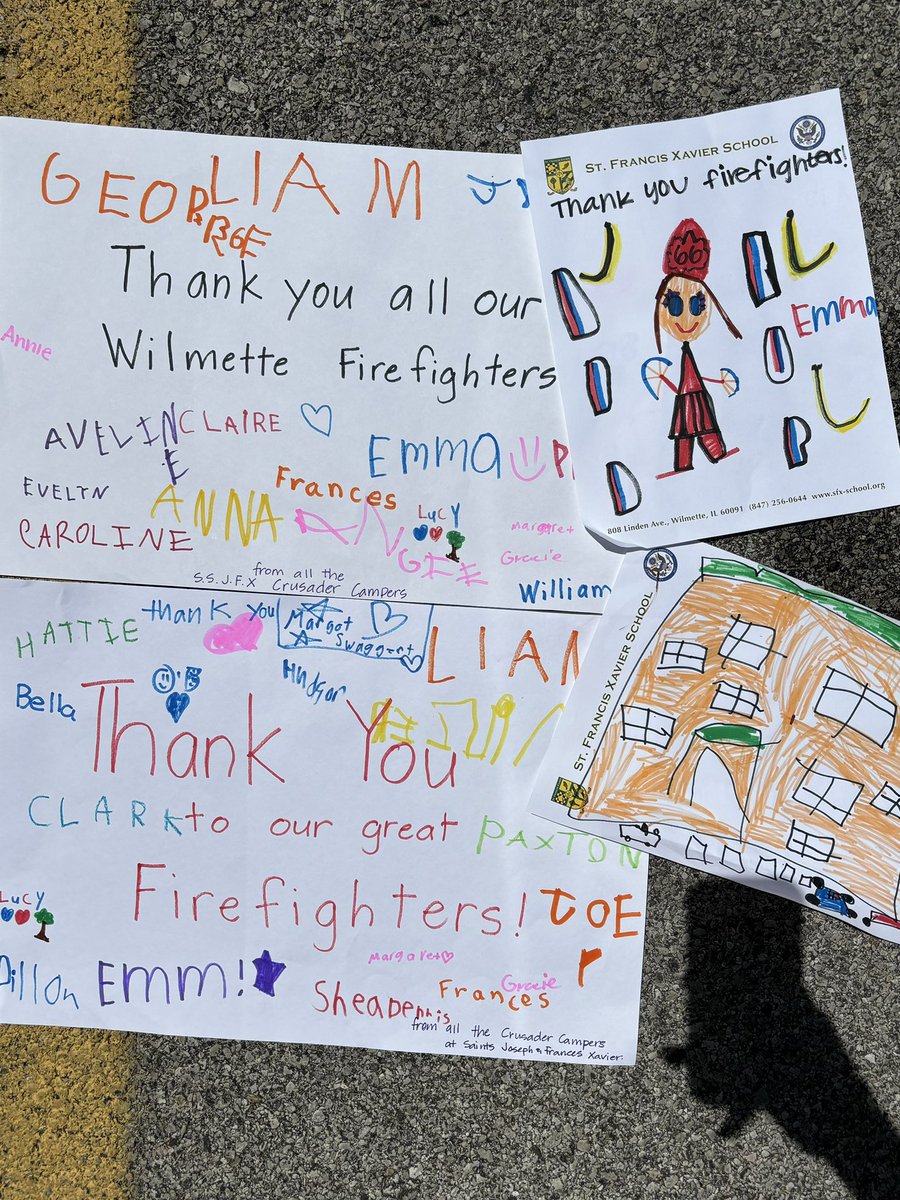 GEORGE
RGE
LIAM
Thank you all our
Wilmette Firefighters
Annie
AVELINE
CLAIRE
EMMA
EVELYN
ANNA
Frances
LUCY
CAROLINE
Margaret
Gracie
from all the
S.S.J.F.X Crusader Campers
William
ST. FRANCIS XAVIER SCHOOL
Thank you firefighters!
66
Emma
808 Linden Ave., Wilmette, IL 60091 (847) 256-0644 www.sfx-school.org
ST. FRANCIS XAVIER SCHOOL
HATTIE
thank you
Margot
Swaggert
LIAM
Hudson
Bella
Thank You
CLARK
to our great
PAXTON
Firefighters!
LUCY
Dillon
EMM!
Margaret
Gracie
SheaDennis
Frances
from all the Crusader Campers
at Saints Joseph & Frances Xavier.